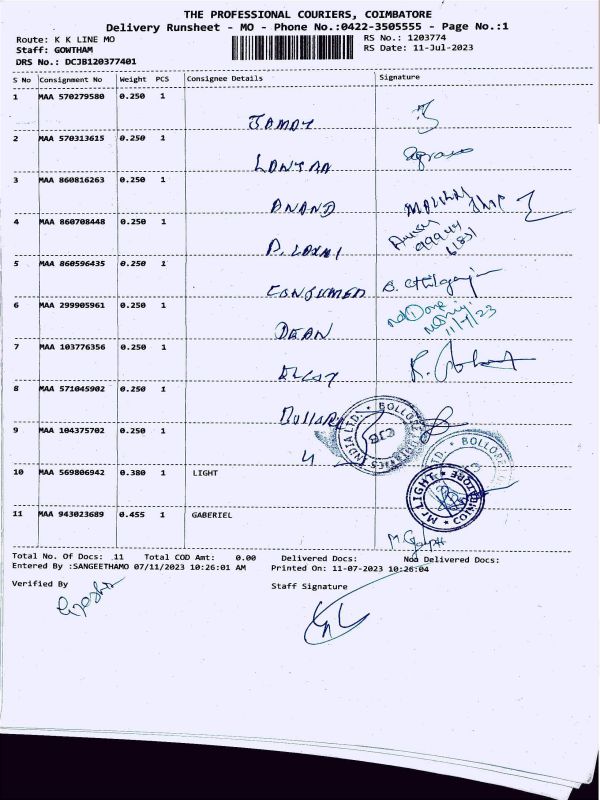 THE PROFESSIONAL COURIERS, COIMBATORE
Delivery Runsheet - MO - Phone No.:0422-3505555 - Page No.:1
Route: K K LINE MO
RS No.: 1203774
Staff: GOWTHAM
RS Date: 11-Jul-2023
DRS No.: DCJB120377401
S No Consignment No Weight PCS Consignee Details Signature
1 MAA 570279580 0.250 1
2 MAA 570313615 0.250 1
3 MAA 860816263 0.250 1
ANAND
4 MAA 860708448 0.250 1
P. LAXMI
5 MAA 860596435 0.250 1
CONSUMER
6 MAA 299905961 0.250 1
DEAN
11/7/23
7 MAA 103776356 0.250 1
8 MAA 571045902 0.250 1
9 MAA 104375702 0.250 1
INDIA LTD. * BOLLORE
CJB
BOLLORE
10 MAA 569806942 0.380 1 LIGHT
Mr. LIGHT
11 MAA 943023689 0.455 1 GABERIEL
Total No. Of Docs: 11 Total COD Amt: 0.00 Delivered Docs: Non Delivered Docs:
Entered By :SANGEETHAMO 07/11/2023 10:26:01 AM Printed On: 11-07-2023 10:26:04
Verified By Staff Signature